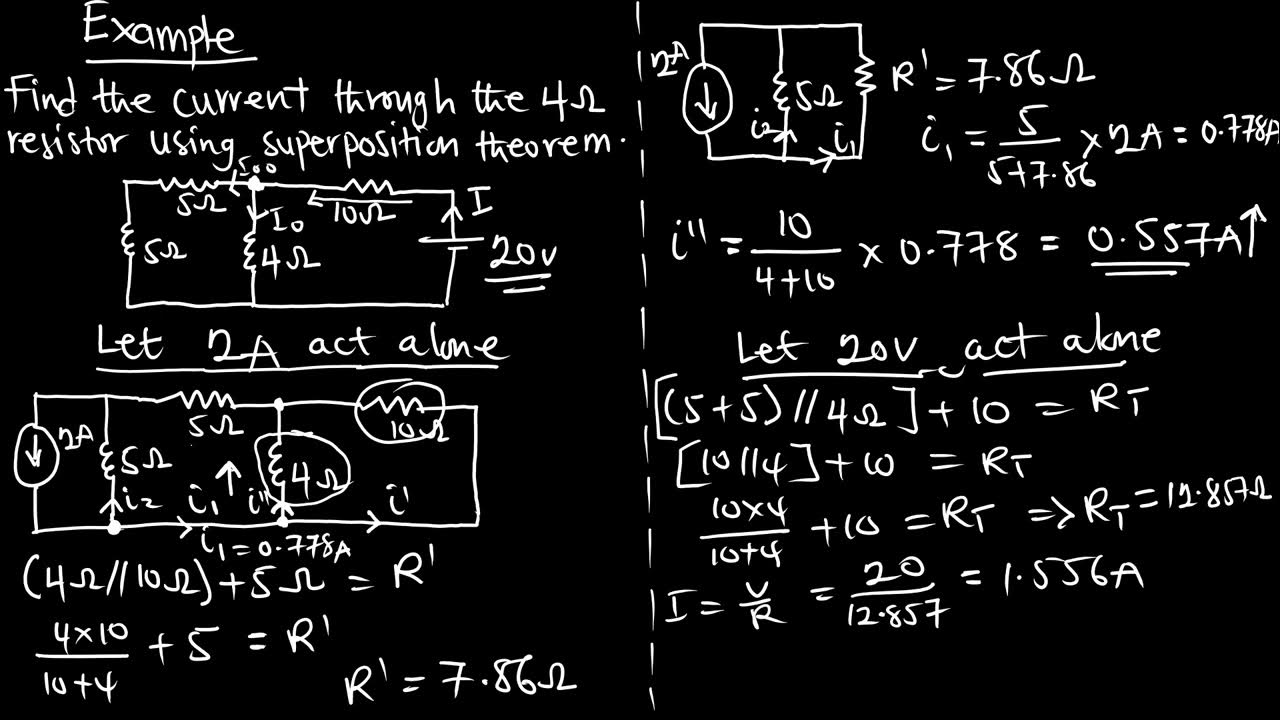 Example
Find the current through the 4Ω
resistor using superposition theorem.
I₀₀
5Ω
10Ω
I
I₀
5Ω
4Ω
20V
Let 2A act alone
2A
5Ω
10Ω
5Ω
4Ω
i₂
i₁
i''
i'
i₁ = 0.778A
(4Ω//10Ω)+5Ω = R'
4×10/10+4 + 5 = R'
R' = 7.86Ω
2A
5Ω
R' = 7.86Ω
i₂
i₁
i₁ = 5/5+7.86 × 2A = 0.778A
i'' = 10/4+10 × 0.778 = 0.557A↑
Let 20V act alone
[(5+5)//4Ω]+10 = RT
[10//4]+10 = RT
10×4/10+4 +10 = RT => RT = 12.857Ω
I = V/R = 20/12.857 = 1.556A